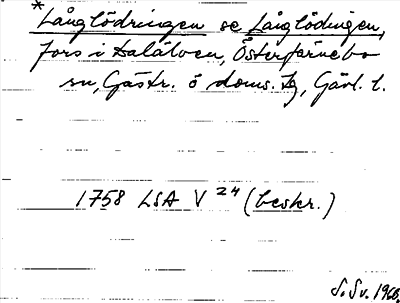 * Långlödringen se Långlödingen,
fors i Dalälven, Österfärnebo
sn, Gästr. ö doms. tg, Gävl. l.
1758 LSA V 24 (beskr.)
S. Sv. 1960.